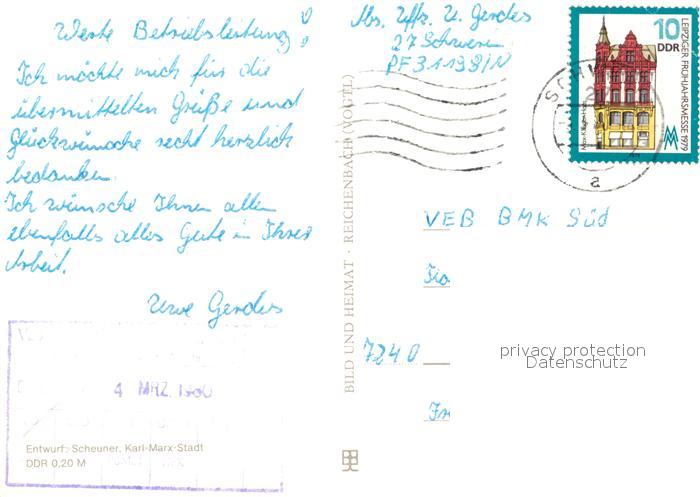 Werte Betriebsleitung!
Ich möchte mich für die
übermittelten Grüße und
Glückwünsche recht herzlich
bedanken.
Ich wünsche Ihnen allen
ebenfalls alles Gute in Ihrer
Arbeit.
Uwe Gerdes
4. MRZ. 1980
Entwurf: Scheuner, Karl-Marx-Stadt
DDR 0,20 M
BILD UND HEIMAT · REICHENBACH (VOGTL)
Abs. Uffz. U. Gerdes
27 Schwerin
PF 31198/N
10
DDR
LEIPZIGER FRÜHJAHRSMESSE 1979
1979
MM
SCHW
a
VEB BMK Süd
7240
privacy protection
Datenschutz